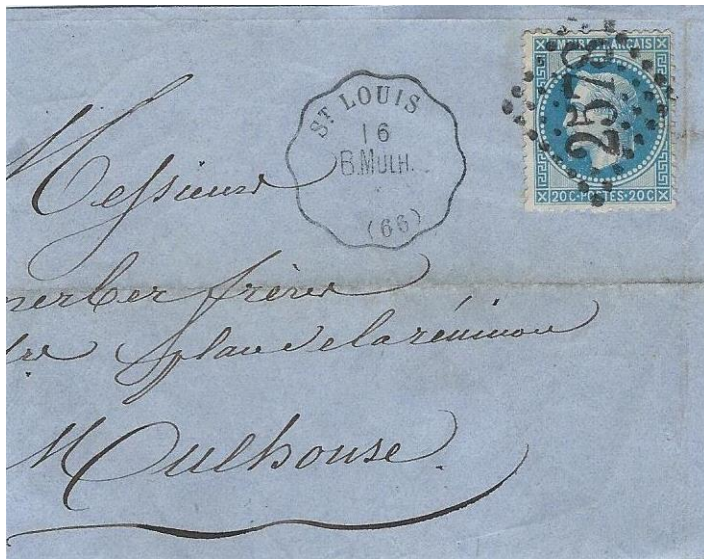 EMPIRE FRANÇAIS
2578
20C·POSTES·20C
ST LOUIS
16
B.MULH.
(66)
Messieurs
frères
place de la réunion
Mulhouse